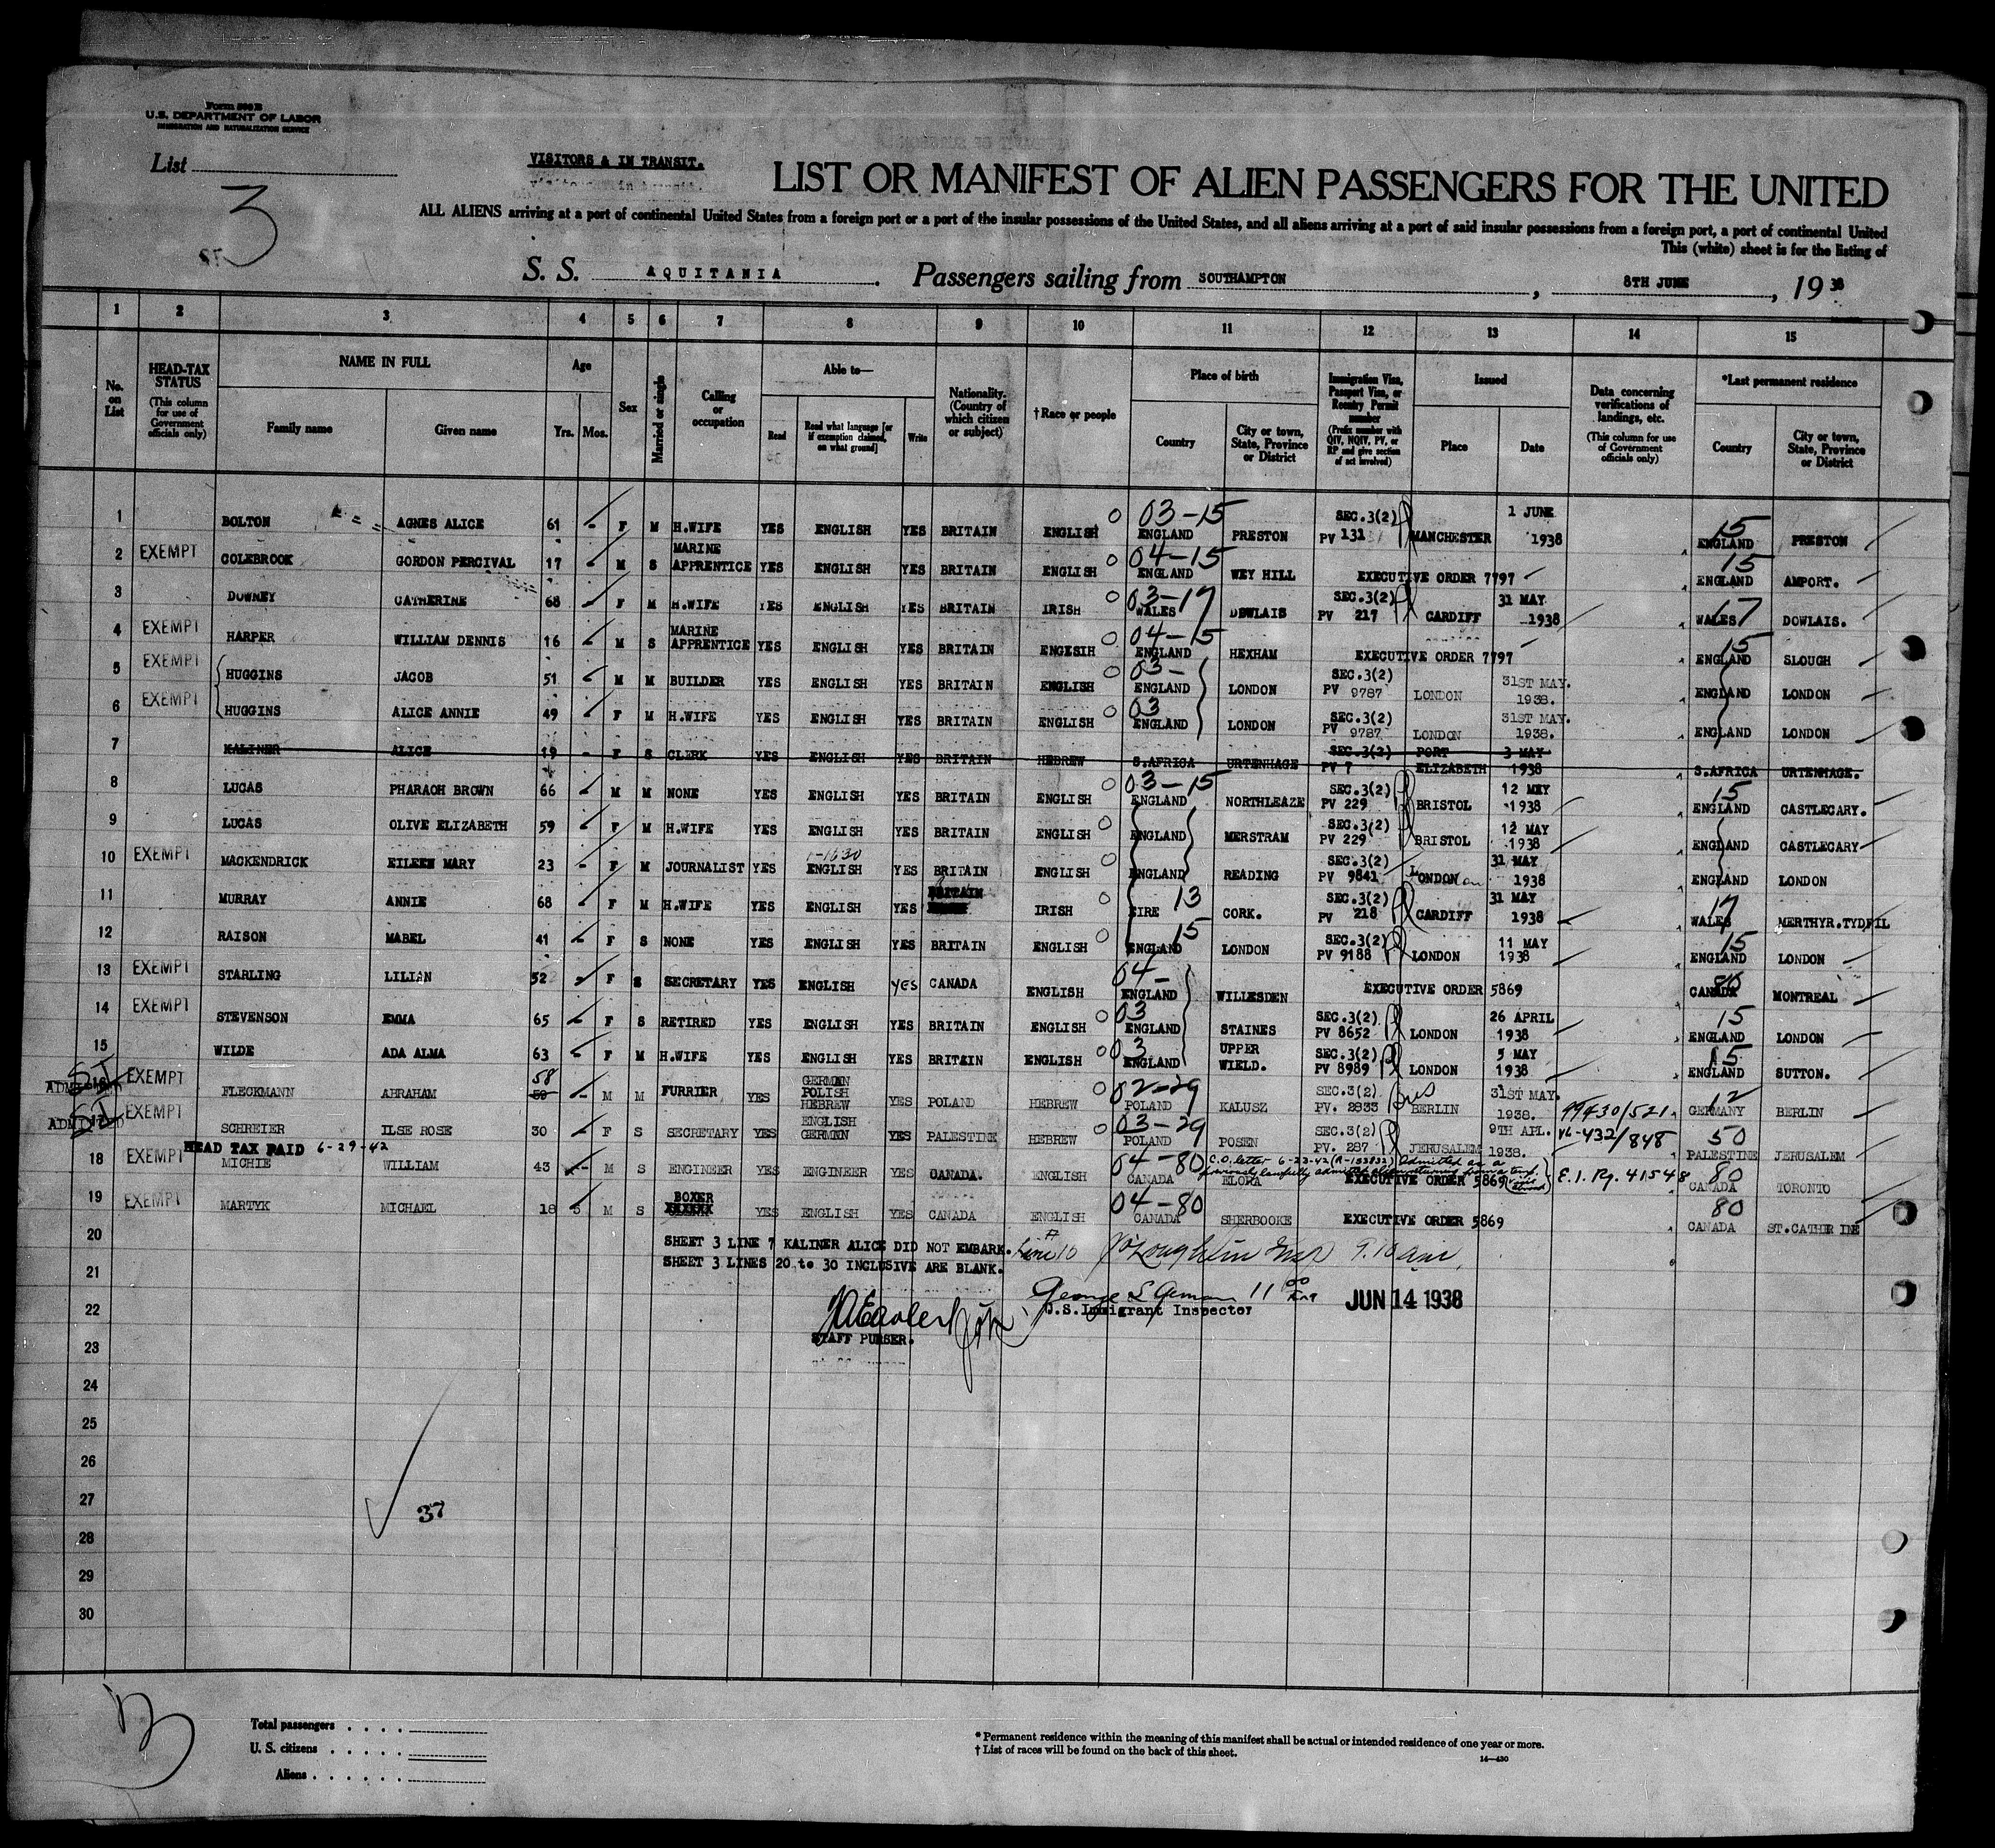 Form 500 B
U.S. DEPARTMENT OF LABOR
IMMIGRATION AND NATURALIZATION SERVICE
List
3
VISITORS & IN TRANSIT.
LIST OR MANIFEST OF ALIEN PASSENGERS FOR THE UNITED
ALL ALIENS arriving at a port of continental United States from a foreign port or a port of the insular possessions of the United States, and all aliens arriving at a port of said insular possessions from a foreign port, a port of continental United
This (white) sheet is for the listing of
S. S. AQUITANIA. Passengers sailing from SOUTHAMPTON, 8TH JUNE, 1938
1 2 3 4 5 6 7 8 9 10 11 12 13 14 15
No. on List
HEAD-TAX STATUS (This column for use of Government officials only)
NAME IN FULL Family name Given name
Age Yrs. Mos.
Sex
Married or single
Calling or occupation
Able to— Read Read what language [or if exemption claimed, on what ground] Write
Nationality. (Country of which citizen or subject)
†Race or people
Place of birth Country City or town, State, Province or District
Immigration Visa, Passport Visa, or Reentry Permit number (Prefix number with QIV, NQIV, PV, or RP and give section of act involved)
Issued Place Date
Data concerning verifications of landings, etc. (This column for use of Government officials only)
*Last permanent residence Country City or town, State, Province or District
1 BOLTON AGNES ALICE 61 - F M H.WIFE YES ENGLISH YES BRITAIN ENGLISH 03-15 ENGLAND PRESTON SEC.3(2) PV 131 MANCHESTER 1 JUNE 1938 15 ENGLAND PRESTON
2 EXEMPT COLEBROOK GORDON PERCIVAL 17 - M S MARINE APPRENTICE YES ENGLISH YES BRITAIN ENGLISH 04-15 ENGLAND WEY HILL EXECUTIVE ORDER 7797 15 ENGLAND AMPORT.
3 DOWNEY CATHERINE 68 - F M H.WIFE YES ENGLISH YES BRITAIN IRISH 03-17 WALES DOWLAIS SEC.3(2) PV 217 CARDIFF 31 MAY 1938 17 WALES DOWLAIS.
4 EXEMPT HARPER WILLIAM DENNIS 16 - M S MARINE APPRENTICE YES ENGLISH YES BRITAIN ENGKSIH 04-15 ENGLAND HEXHAM EXECUTIVE ORDER 7797 15 ENGLAND SLOUGH
5 EXEMPT HUGGINS JACOB 51 - M M BUILDER YES ENGLISH YES BRITAIN ENGLISH 03- ENGLAND LONDON SEC.3(2) PV 9787 LONDON 31ST MAY. 1938. ENGLAND LONDON
6 EXEMPT HUGGINS ALICE ANNIE 49 - F M H.WIFE YES ENGLISH YES BRITAIN ENGLISH 03 ENGLAND LONDON SEC.3(2) PV 9787 LONDON 31ST MAY. 1938. ENGLAND LONDON
7 KALINER ALICE 19 - F S CLERK YES ENGLISH YES BRITAIN HEBREW S.AFRICA URTENHAGE SEC.3(2) PV 7 PORT ELIZABETH 3 MAY 1938 S.AFRICA URTENHAGE.
8 LUCAS PHARAOH BROWN 66 - M M NONE YES ENGLISH YES BRITAIN ENGLISH 03-15 ENGLAND NORTHLEAZE SEC.3(2) PV 229 BRISTOL 12 MEY 1938 15 ENGLAND CASTLECARY.
9 LUCAS OLIVE ELIZABETH 59 - F M H.WIFE YES ENGLISH YES BRITAIN ENGLISH ENGLAND MERSTRAM SEC.3(2) PV 229 BRISTOL 12 MAY 1938 ENGLAND CASTLECARY
10 EXEMPT MACKENDRICK EILEEN MARY 23 - F M JOURNALIST YES 1-1630 ENGLISH YES BRITAIN ENGLISH ENGLAND READING SEC.3(2) PV 9841 LONDON 31 MAY 1938 ENGLAND LONDON
11 MURRAY ANNIE 68 - F M H.WIFE YES ENGLISH YES BRITAIN IRISH 13 EIRE CORK. SEC.3(2) PV 218 CARDIFF 31 MAY 1938 17 WALES MERTHYR.TYDFIL
12 RAISON MABEL 41 - F S NONE YES ENGLISH YES BRITAIN ENGLISH 15 ENGLAND LONDON SEC.3(2) PV 9188 LONDON 11 MAY 1938 15 ENGLAND LONDON
13 EXEMPT STARLING LILIAN 52 - F S SECRETARY YES ENGLISH YES CANADA ENGLISH 04- ENGLAND WILLESDEN EXECUTIVE ORDER 5869 80 CANADA MONTREAL
14 EXEMPT STEVENSON EMMA 65 - F S RETIRED YES ENGLISH YES BRITAIN ENGLISH 03 ENGLAND STAINES SEC.3(2) PV 8652 LONDON 26 APRIL 1938 15 ENGLAND LONDON
15 WILDE ADA ALMA 63 - F M H.WIFE YES ENGLISH YES BRITAIN ENGLISH 03 ENGLAND UPPER WIELD. SEC.3(2) PV 8989 LONDON 5 MAY 1938 15 ENGLAND SUTTON.
SI ADMITTED 16 EXEMPT FLECKMANN AHRAHAM 58 59 - M M FURRIER YES GERMAN POLISH HEBREW YES POLAND HEBREW 02-29 POLAND KALUSZ SEC.3(2) PV. 2833 BERLIN 31ST MAY. 1938. 99430/521 12 GERMANY BERLIN
SI ADMITTED 17 EXEMPT SCHREIER ILSE ROSE 30 - F S SECRETARY YES ENGLISH GERMAN YES PALESTINE HEBREW 03-29 POLAND POSEN SEC.3(2) PV. 287 JERUSALEM 9TH APL. 1938. V6-432/848 50 PALESTINE JERUSALEM
HEAD TAX PAID 6-29-42
18 EXEMPT MICHIE WILLIAM 43 - M S ENGINEER YES ENGINEER YES CANADA. ENGLISH 04-80 CANADA ELORA C.O. letter 6-23-42 admitted as a previously lawfully admitted alien returning from a temp. EXECUTIVE ORDER 5869 E.I. Rg. 41548 80 CANADA TORONTO
19 EXEMPT MARTYK MICHAEL 18 5 M S BOXER YES ENGLISH YES CANADA ENGLISH 04-80 CANADA SHERBOOKE EXECUTIVE ORDER 5869 80 CANADA ST.CATHERINE
20 SHEET 3 LINE 7 KALINER ALICE DID NOT EMBARK. Line 10 9.10 am.
21 SHEET 3 LINES 20 to 30 INCLUSIVE ARE BLANK.
22 U.S.Immigrant Inspector JUN 14 1938
STAFF PURSER.
23
24
25
26
27
37
28
29
30
Total passengers
U. S. citizens
Aliens
* Permanent residence within the meaning of this manifest shall be actual or intended residence of one year or more.
† List of races will be found on the back of this sheet.
14—430